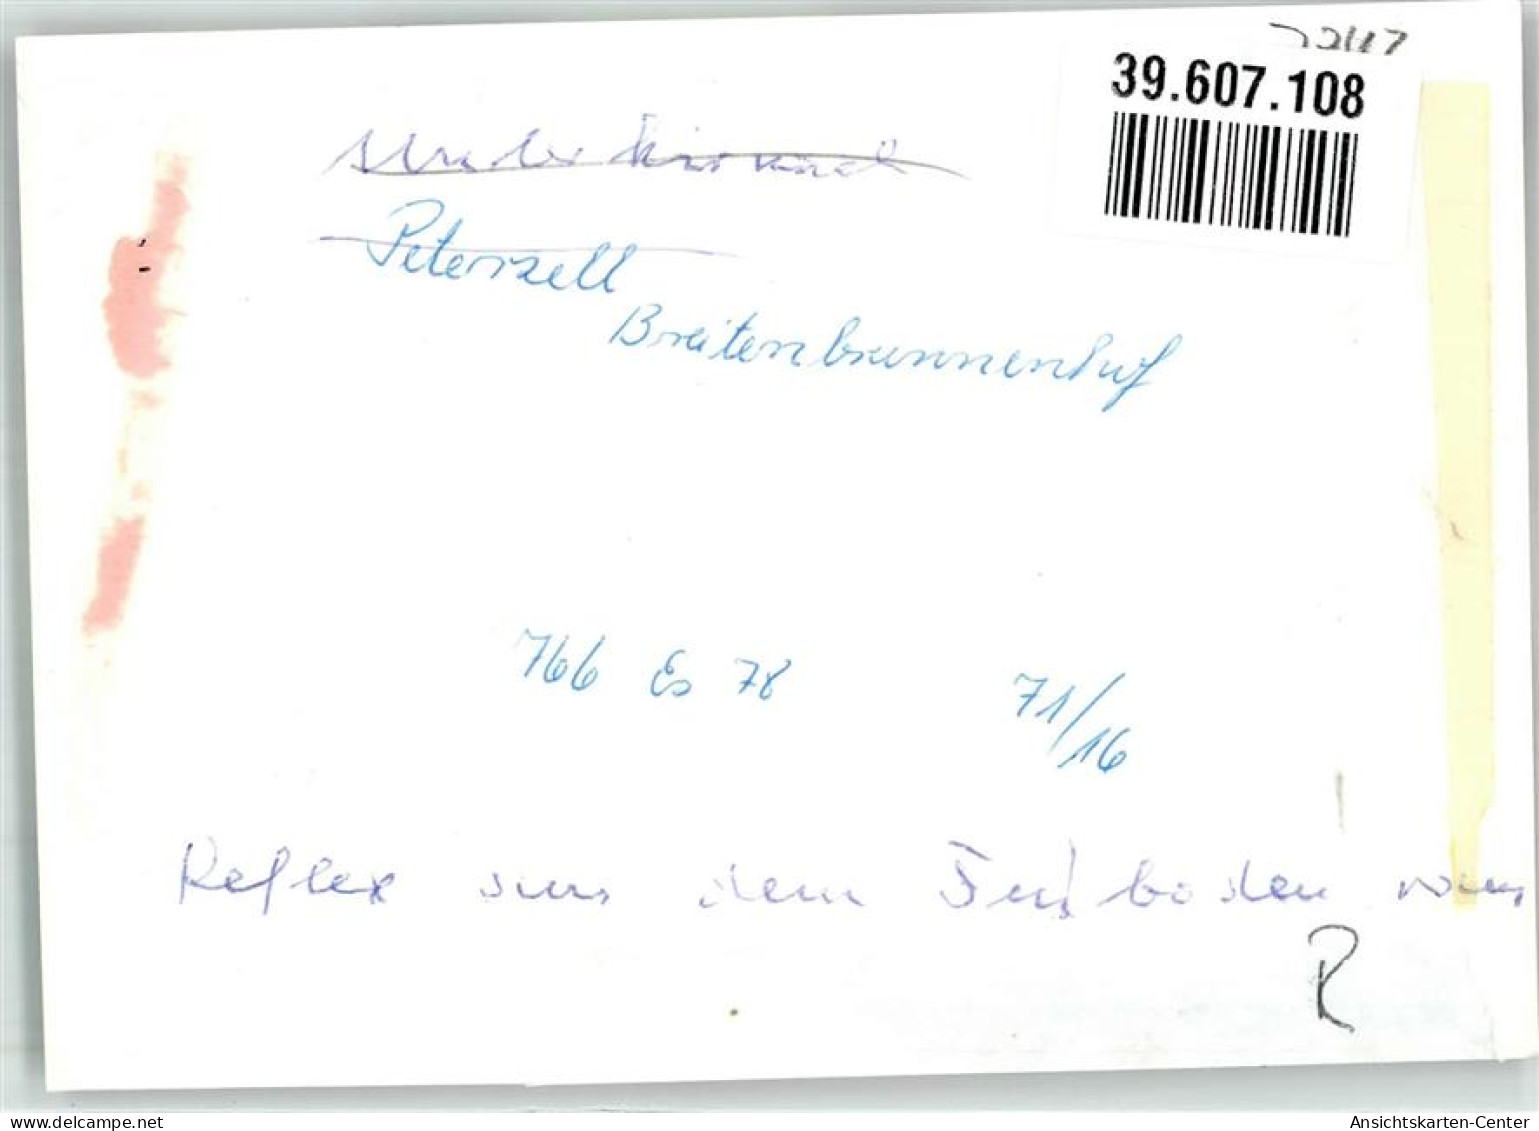 39.607.108
Unterkirnach
Peterzell
Breitenbrunnenhof
766 Es 78
71/16
Reflex aus dem Fußboden raus
R
www.delcampe.net
Ansichtskarten-Center